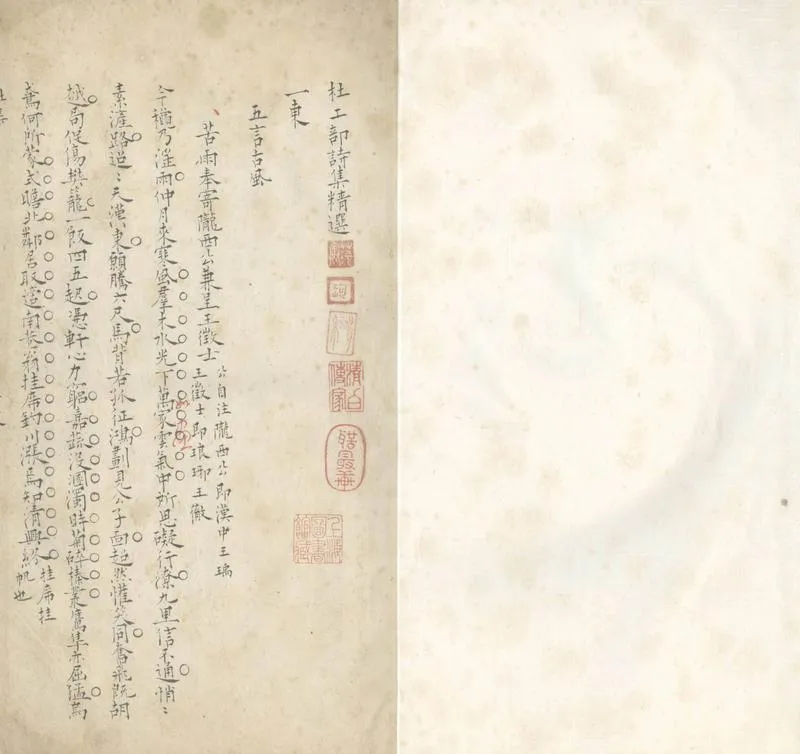 杜工部詩集精選
清白傳家
上海圖書館藏
一東
五言古風
苦雨奉寄隴西公兼呈王徵士
公自注隴西公即漢中王瑀
王徵士即琅琊王徹
今穐乃淫雨仲月來寒風羣木水光下萬家雲氣中所思礙行潦九里信不通悄〻
素滻路迢〻天漢東願騰六尺馬背若孤征鴻劃見公子面超然懽笑同奮飛既胡
越局促傷樊籠一飯四五起憑軒心力窮嘉蔬沒溷濁時菊碎榛叢鷹隼亦屈猛烏
鳶何所蒙式瞻北鄰居取適南巷翁挂席釣川漲焉知清興終
挂席挂
帆也